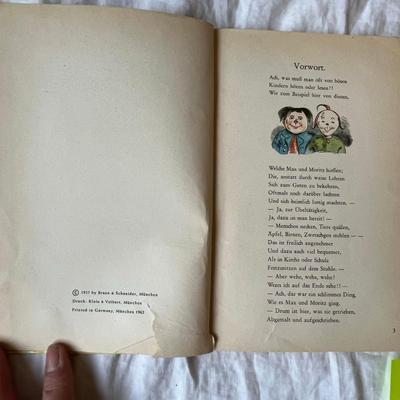 © 1937 by Braun & Schneider, München
Druck: Klein & Volbert, München
Printed in Germany, München 1962
Vorwort.
Ach, was muß man oft von bösen
Kindern hören oder lesen!!
Wie zum Beispiel hier von diesen,
Welche Max und Moritz hießen;
Die, anstatt durch weise Lehren
Sich zum Guten zu bekehren,
Oftmals noch darüber lachten
Und sich heimlich lustig machten. —
— Ja, zur Übeltätigkeit,
Ja, dazu ist man bereit! —
— Menschen necken, Tiere quälen,
Äpfel, Birnen, Zwetschgen stehlen — —
Das ist freilich angenehmer
Und dazu auch viel bequemer,
Als in Kirche oder Schule
Festzusitzen auf dem Stuhle. —
— Aber wehe, wehe, wehe!
Wenn ich auf das Ende sehe!! —
— Ach, das war ein schlimmes Ding,
Wie es Max und Moritz ging.
— Drum ist hier, was sie getrieben,
Abgemalt und aufgeschrieben.
3